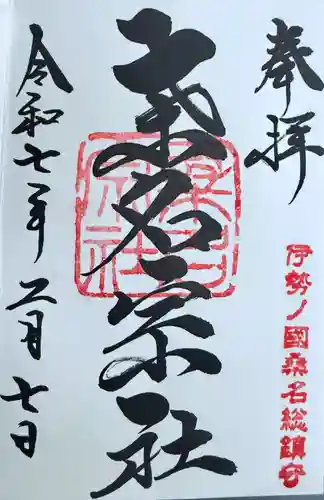 奉拝
伊勢ノ國桑名総鎮守
桑名宗社
令和七年二月七日